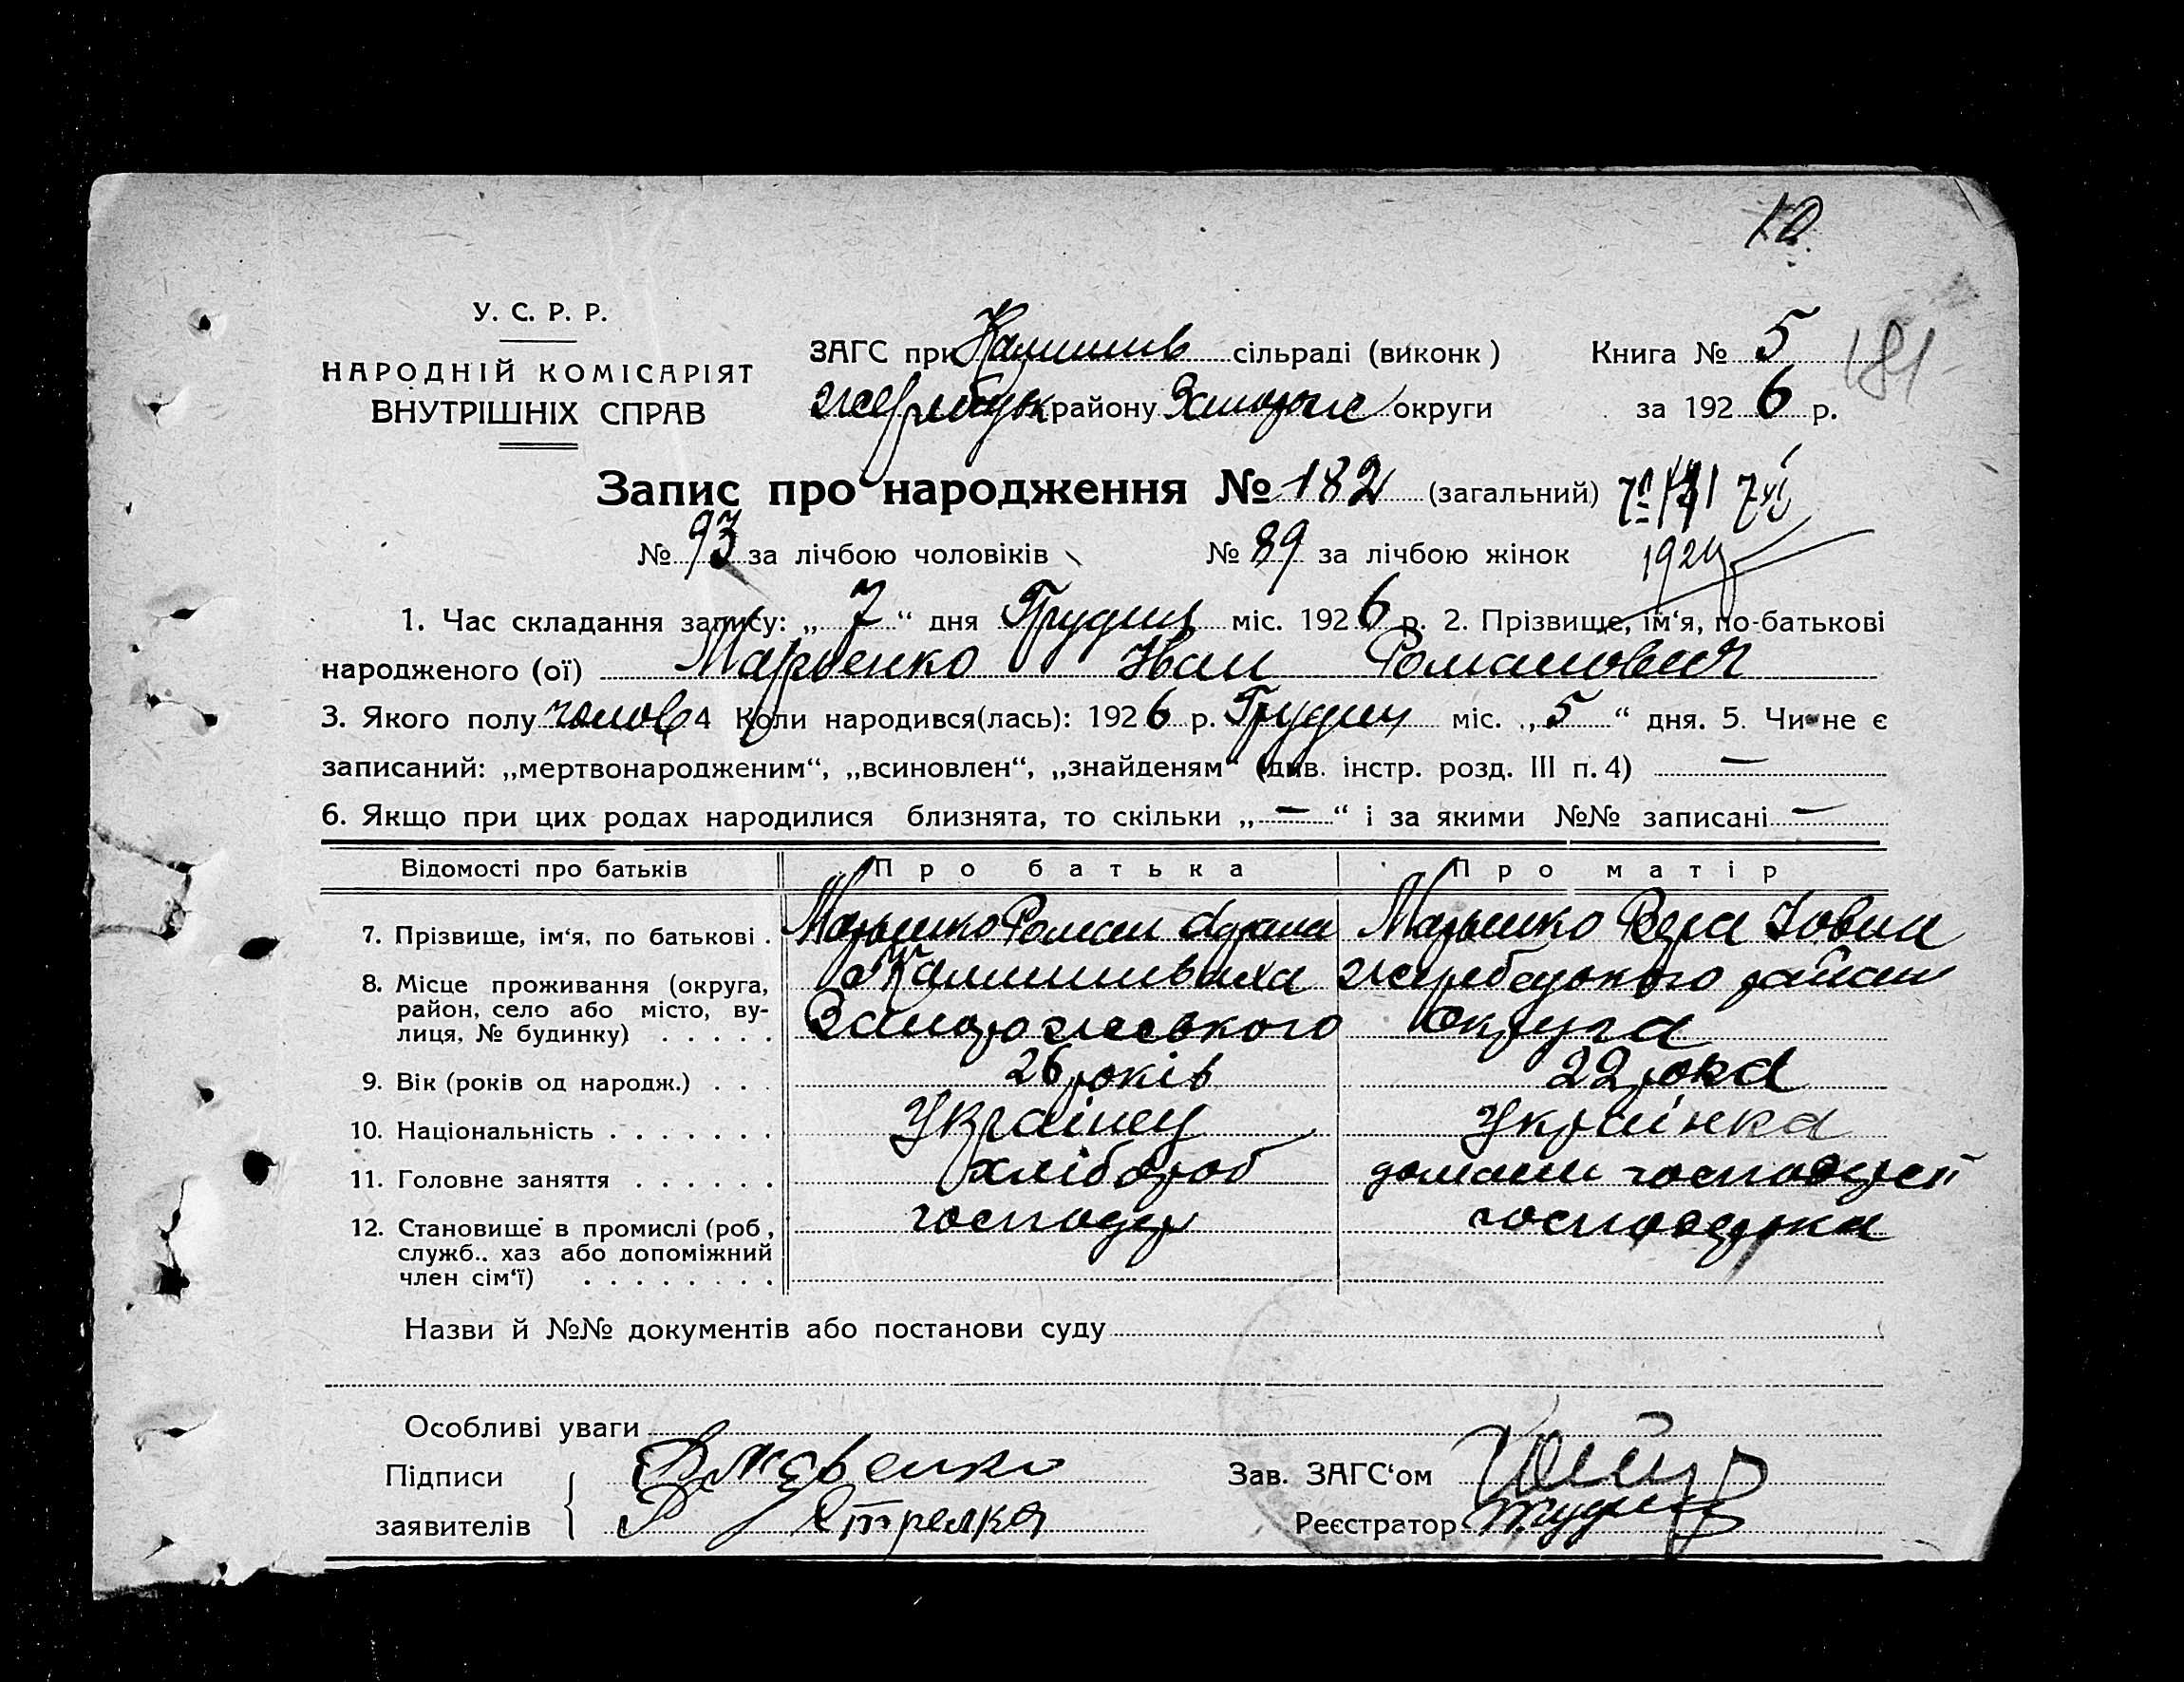 10
У. С. Р. Р.
НАРОДНІЙ КОМІСАРІЯТ
ВНУТРІШНІХ СПРАВ
ЗАГС при сільраді (виконк) Книга № 5 181
Жеребецьк району Запоріж округи за 1926 р.
Запис про народження № 182 (загальний)
№ 93 за лічбою чоловіків № 89 за лічбою жінок
1. Час складання запису: „ 7 “ дня Грудня міс. 1926 р. 2. Прізвище, ім‘я, по-батькові
народженого (ої) Марченко Іван Романович
3. Якого полу чолов 4 Коли народився(лась): 1926 р. Грудня міс. „ 5 “ дня. 5. Чи не є
записаний: „мертвонародженим“, „всиновлен“, „знайденям“ (див. інстр. розд. III п. 4) —
6. Якщо при цих родах народилися близнята, то скільки „ — “ і за якими №№ записані —
Відомості про батьків Про батька Про матір
7. Прізвище, ім‘я, по батькові . Роман Вера
8. Місце проживання (округа, Жеребецького району
район, село або місто, ву- Запорожського округа
лиця, № будинку) . . . . .
9. Вік (років од народж.) . . . 26 років 22 рока
10. Національність . . . . . . . Українец Українка
11. Головне заняття . . . . . . хлібороб домашн господарст
12. Становище в промислі (роб, господар господарка
служб., хаз або допоміжний
член сім‘ї) . . . . . . . .
Назви й №№ документів або постанови суду
Особливі уваги
Підписи Зав. ЗАГС‘ом
заявителів Р Стрелка Реєстратор